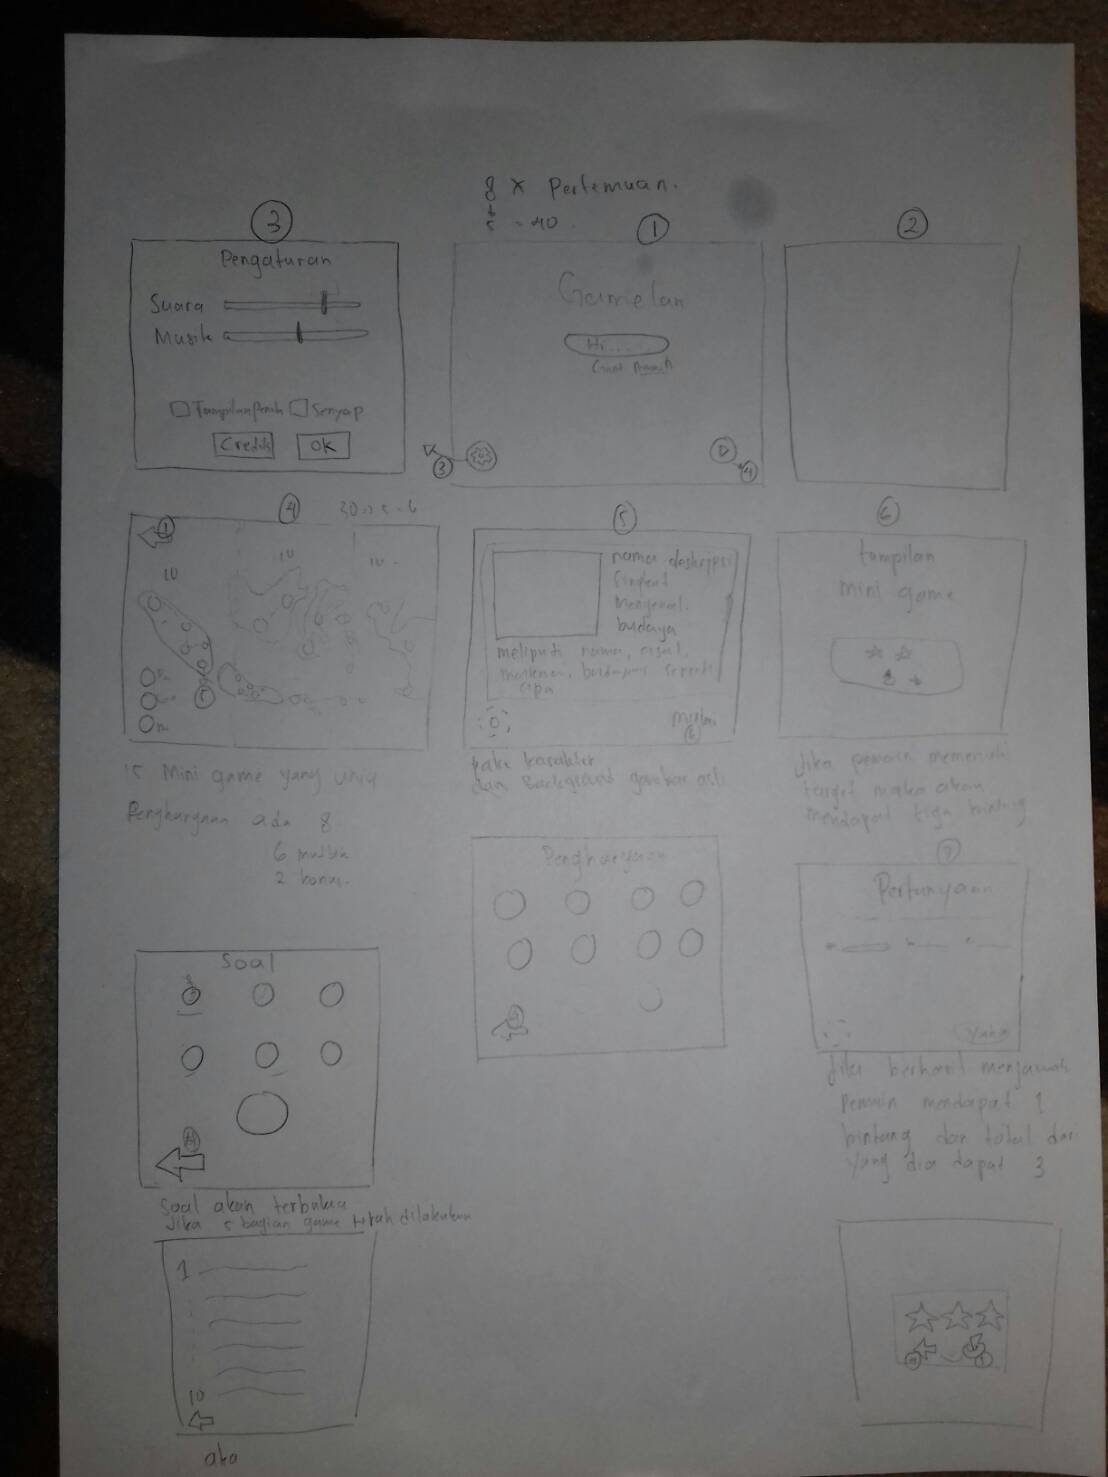 8 x Pertemuan.
5 - 40
3
Pengaturan
Suara
Musik
Senyap
Credits
OK
1
Gamelan
Hi....
3
4
2
4
1
10
10
10
15 Mini game yang unik
Penghargaan ada 8
6 musik
2 bonus.
5
nama deskripsi
singkat
mengenal
budaya
meliputi nama, asal,
apa
mulai
6
pake karakter
dan Background gambar asli
6
tampilan
mini game
Jika pemain memenuhi
target maka akan
mendapat tiga bintang
Penghargaan
7
Pertanyaan
Jika berhasil menjawab
Pemain mendapat 1
bintang dan total dari
yang dia dapat 3
Soal
Soal akan terbuka
Jika 5 bagian game telah dilakukan
1
10